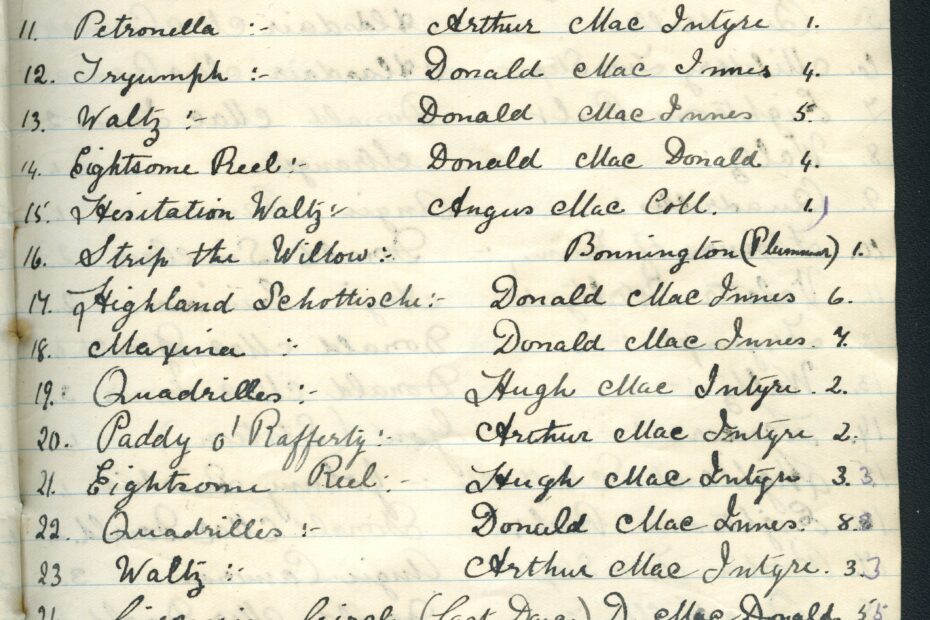 11. Petronella :- Arthur Mac Intyre 1.
12. Tryumph :- Donald Mac Innes 4.
13. Waltz :- Donald Mac Innes 5.
14. Eightsome Reel :- Donald Mac Donald 4.
15. Hesitation Waltz :- Angus Mac Coll. 1.)
16. Strip the Willow :- Bonnington (Plummer) 1.
17. Highland Schottische :- Donald Mac Innes 6.
18. Maxina :- Donald Mac Innes. 7.
19. Quadrilles :- Hugh Mac Intyre. 2.
20. Paddy o' Rafferty :- Arthur Mac Intyre 2.
21. Eightsome Reel :- Hugh Mac Intyre 3. 3
22. Quadrilles :- Donald Mac Innes. 8. 8
23 Waltz :- Arthur Mac Intyre. 3. 3
(Last Dance) D. Mac Donald 5 5